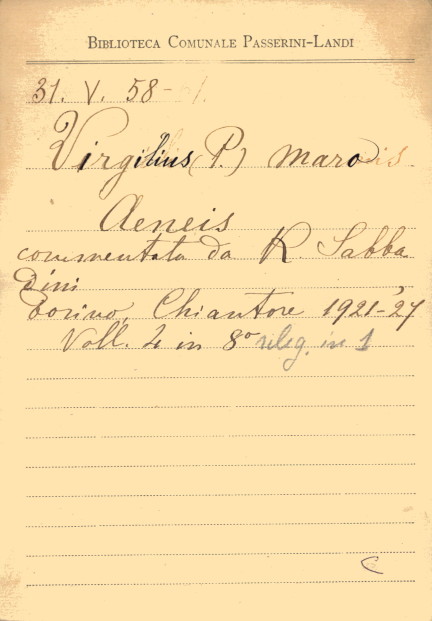 BIBLIOTECA COMUNALE PASSERINI-LANDI
31. V. 58-
Virgilius (P.) Maro
Aeneis
commentata da R. Sabba
dini
Torino, Chiantore 1921-27
Voll. 4 in 8° rileg. in 1
C